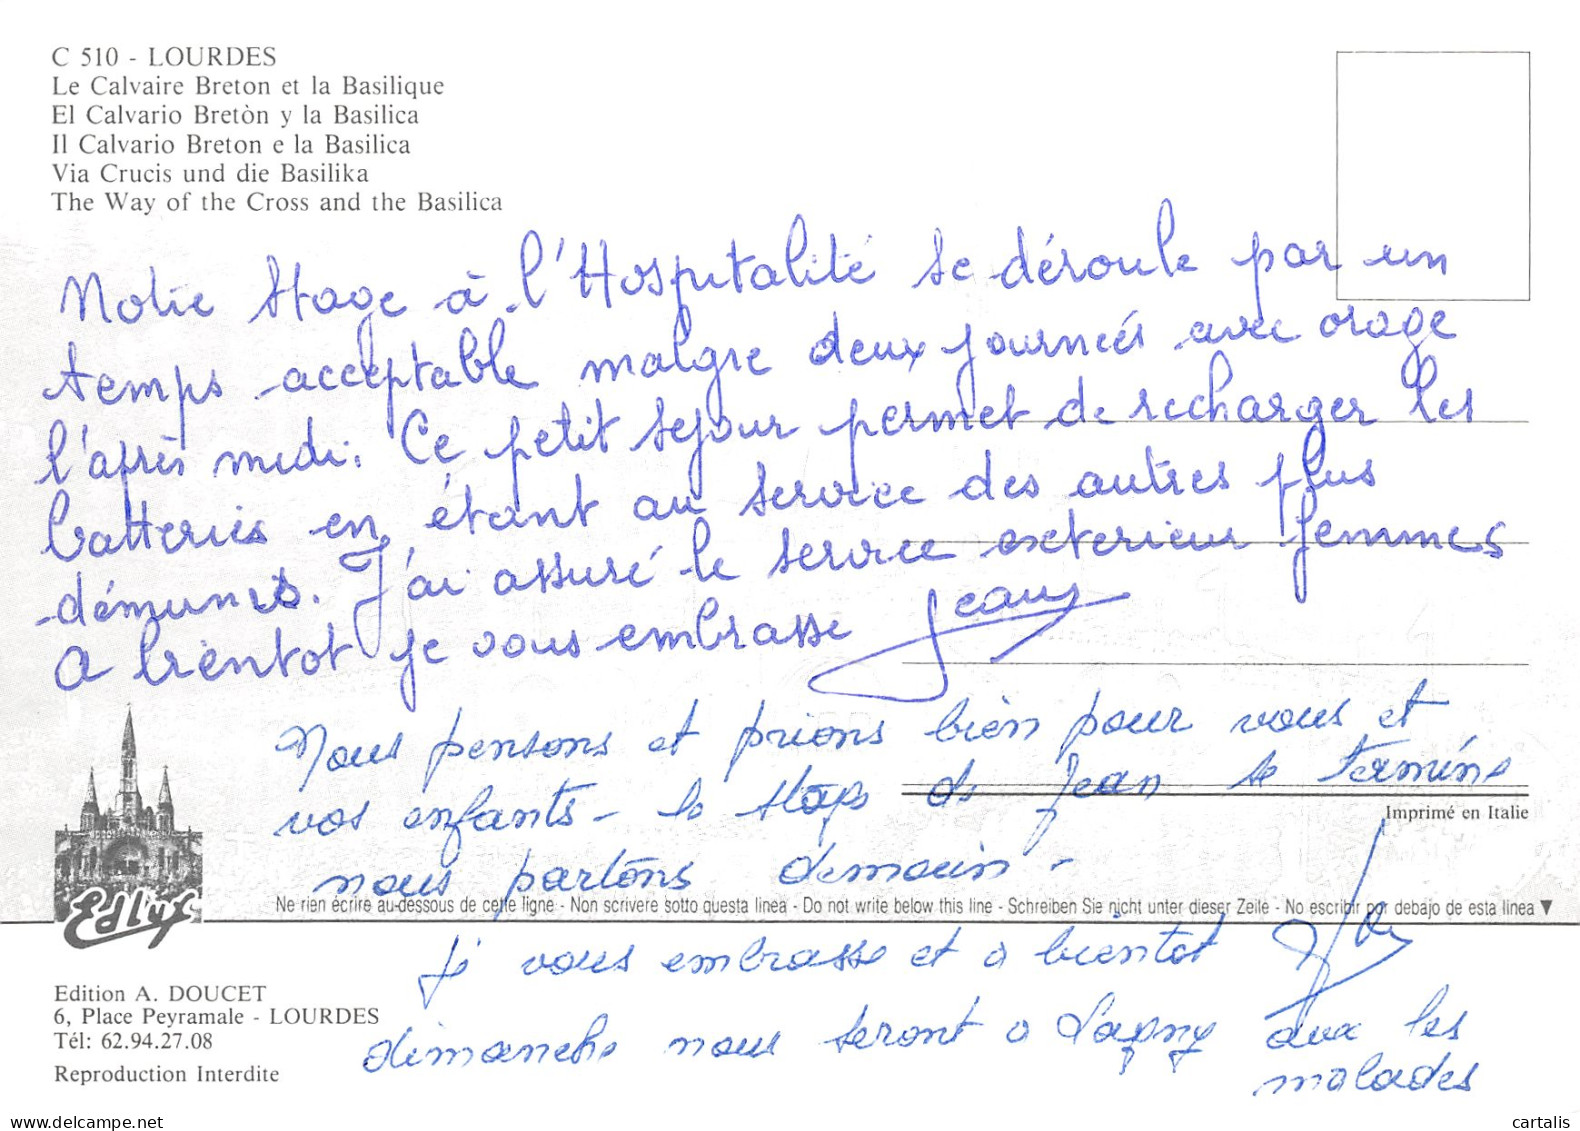 C 510 - LOURDES
Le Calvaire Breton et la Basilique
El Calvario Bretòn y la Basilica
Il Calvario Breton e la Basilica
Via Crucis und die Basilika
The Way of the Cross and the Basilica
Notre stage à l'Hospitalité se déroule par un
temps acceptable malgre deux journées avec orage
l'après midi. Ce petit sejour permet de recharger les
batteries en étant au service des autres plus
démunis. J'ai assuré le service exterieur femmes
A bientot je vous embrasse Jean
Nous pensons et prions bien pour vous et
vos enfants - le stage de Jean se termine
Imprimé en Italie
nous partons demain -
Edlux
Ne rien écrire au-dessous de cette ligne - Non scrivere sotto questa linea - Do not write below this line - Schreiben Sie nicht unter dieser Zeile - No escribir por debajo de esta linea ▼
Je vous embrasse et a bientot
Edition A. DOUCET
6, Place Peyramale - LOURDES
Tél: 62.94.27.08
Reproduction Interdite
dimanche nous seront a Lagny avec les
malades
www.delcampe.net
cartalis